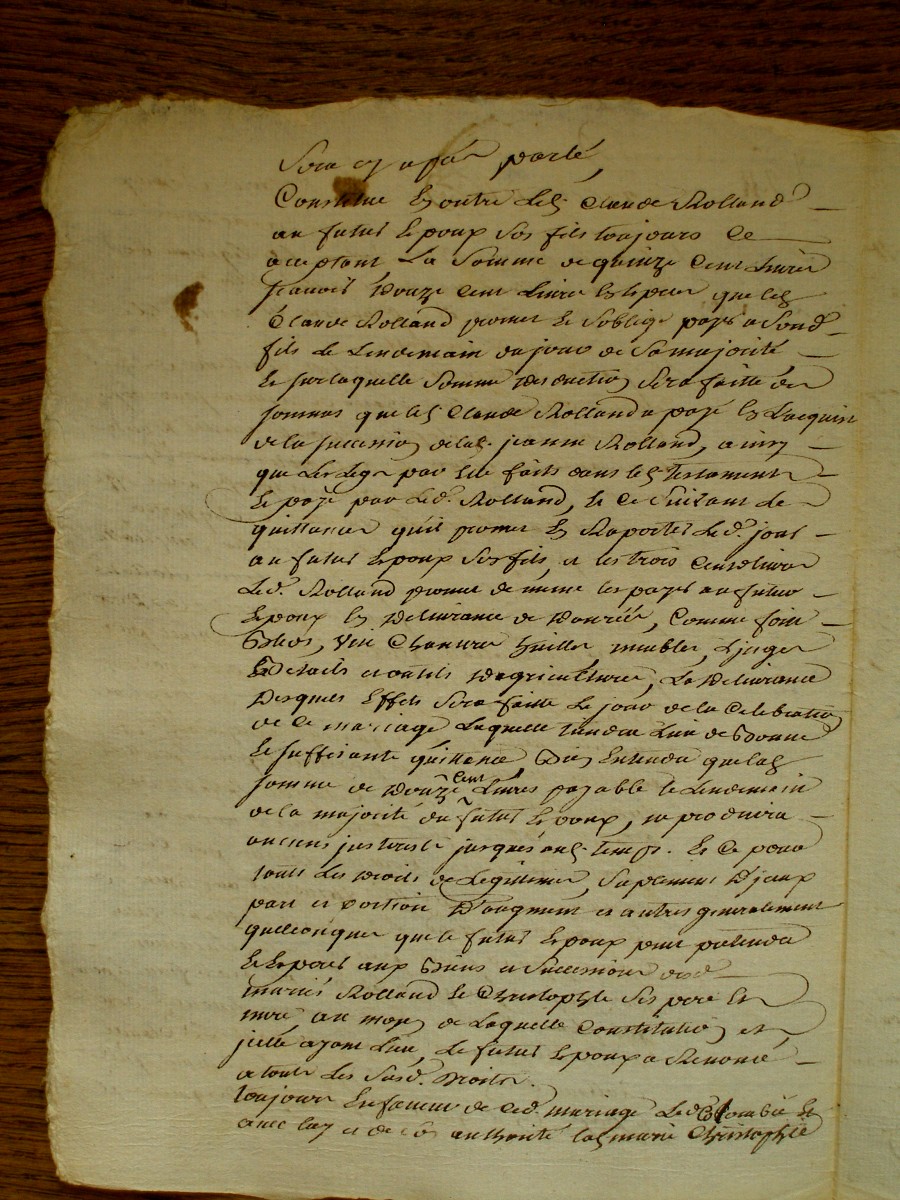 Sera cy apres parlé,
Constitue En outre led. Claude Rolland
au futur Epoux Son fils toujours Ce
acceptant La Somme de quinze Cent Livres
scavoir Douze Cent Livres En Especes que led.
Claude Rolland promet Et S'oblige payer a Sond.
fils Le Lendemain du jour de Sa majorité
Et sur laquelle Somme deduction Sera faitte des
sommes que led. Claude Rolland a payé En L'acquit
de la succession de lad. jeanne Rolland, ainsy
que Les Legs par Elle faits dans led. Testament
Et payé par Led. Rolland, Et Ce Suivant les
quittances qu'il promet En Raporter Led. jour
au futur Epoux Son fils, et les trois Cent Livres
Led. Rolland promet de meme les payer au futur
Epoux En Delivrance de Danrées, Comme foin
Bleds, Vin Chanvre huilles meubles, Linges
Bestails et outils D'agriculture, La Delivrance
Desquels Effets Sera faitte Le jour de la Celebration
de Ce mariage Laquelle tiendra Lieu de Bonne
Et suffisante quittance, Bien Entendu que lad.
somme de Douze Cent Livres payable le Lendemain
de la majorité du futur Epoux, ne produira
aucuns interets jusques aud. temps. Et Ce pour
touts Les Droits de Legitime, Suplement D'jceux
part et portion D'augment et autres generalement
quelconques que le futur Epoux peut pretendre
Et Esperer aux Biens et Successions desd.
mariés Rolland Et Christophle Ses pere Et
mere, au moyen de Laquelle Constitution et
jcelle ayant Lieu, Le futur Epoux a Renoncé
a touts Les Susd. Droits.
toujours En faveur de Ced. mariage Led. Et
avec luy et de Son authorité lad. marie Christophle